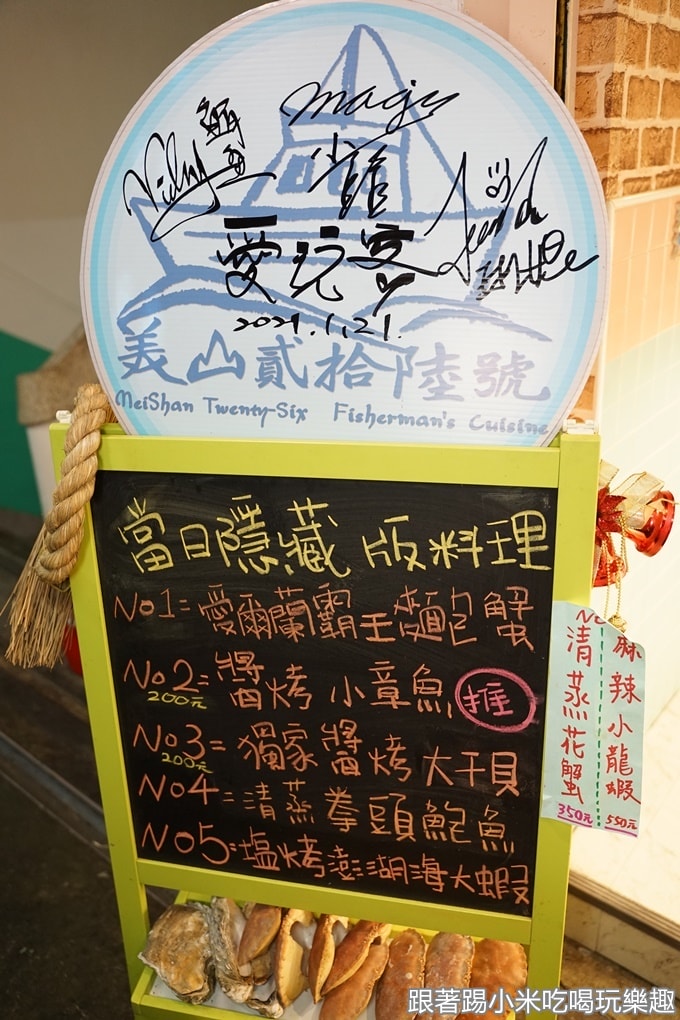 magy
蝦董
Vicky
小鐘
愛玩客
2021.1.21.
美山貳拾陸號
MeiShan Twenty-Six Fisherman's Cuisine
當日隱藏版料理
No1=愛爾蘭霸王麵包蟹
No2=醬烤小章魚 推
200元
No3=獨家醬烤大干貝
200元
No4=清蒸拳頭鮑魚
No5=塩烤澎湖海大蝦
清蒸花蟹
350元
麻辣小龍蝦
550元
跟著踢小米吃喝玩樂趣